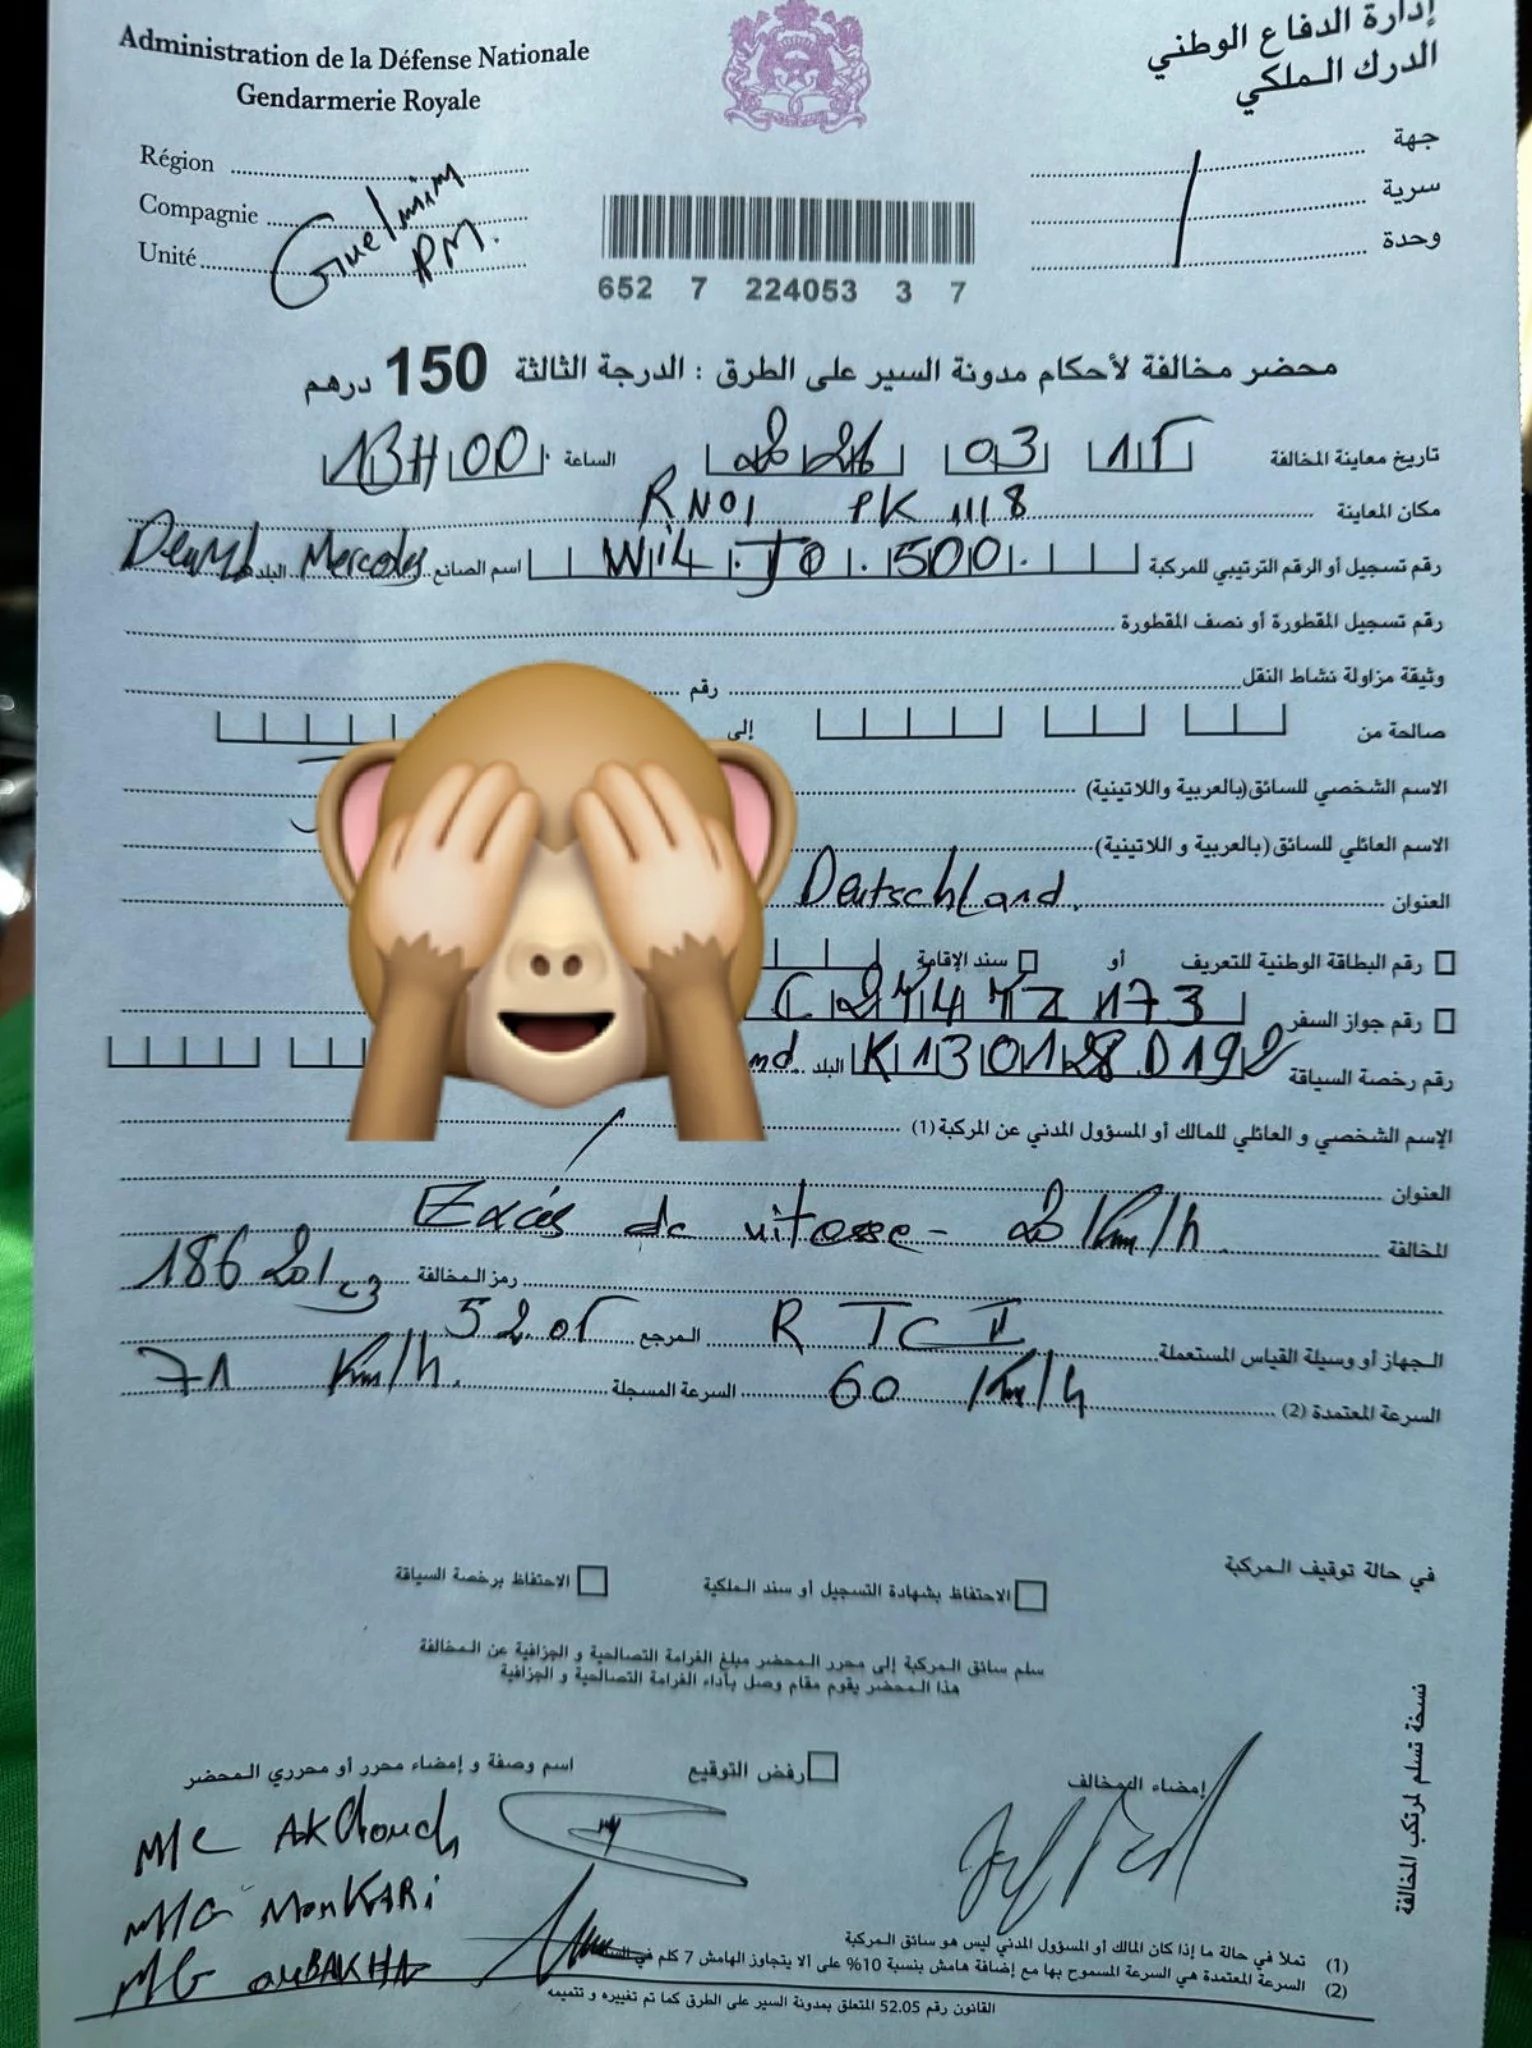 Administration de la Défense Nationale
Gendarmerie Royale
إدارة الدفاع الوطني
الدرك الملكي
Région
Compagnie
Unité
Guelmim
PM.
جهة
سرية
وحدة
652 7 224053 3 7
محضر مخالفة لأحكام مدونة السير على الطرق : الدرجة الثالثة 150 درهم
تاريخ معاينة المخالفة 03 الساعة 13H00
مكان المعاينة RN01 PK 1118
رقم تسجيل أو الرقم الترتيبي للمركبة WiL.JO.500. اسم الصانع Mercedes البلد
رقم تسجيل المقطورة أو نصف المقطورة
وثيقة مزاولة نشاط النقل رقم
صالحة من إلى
الاسم الشخصي للسائق (بالعربية واللاتينية)
الاسم العائلي للسائق (بالعربية و اللاتينية)
العنوان Deutschland.
رقم البطاقة الوطنية للتعريف أو سند الإقامة
رقم جواز السفر
رقم رخصة السياقة البلد nd.
الإسم الشخصي و العائلي للمالك أو المسؤول المدني عن المركبة (1)
العنوان
المخالفة Excès de vitesse - 20 Km/h
رمز المخالفة 186 201
الجهاز أو وسيلة القياس المستعملة المرجع
السرعة المعتمدة (2) 60 Km/h السرعة المسجلة 71 Km/h.
في حالة توقيف المركبة
الاحتفاظ بشهادة التسجيل أو سند الملكية الاحتفاظ برخصة السياقة
سلم سائق المركبة إلى محرر المحضر مبلغ الغرامة التصالحية و الجزافية عن المخالفة
هذا المحضر يقوم مقام وصل بأداء الغرامة التصالحية و الجزافية
إمضاء المخالف رفض التوقيع اسم وصفة و إمضاء محرر أو محرري المحضر
نسخة تسلم لمرتكب المخالفة
(1) تملأ في حالة ما إذا كان المالك أو المسؤول المدني ليس هو سائق المركبة
(2) السرعة المعتمدة هي السرعة المسموح بها مع إضافة هامش بنسبة 10% على ألا يتجاوز الهامش 7 كلم في
القانون رقم 52.05 المتعلق بمدونة السير على الطرق كما تم تغييره و تتميمه